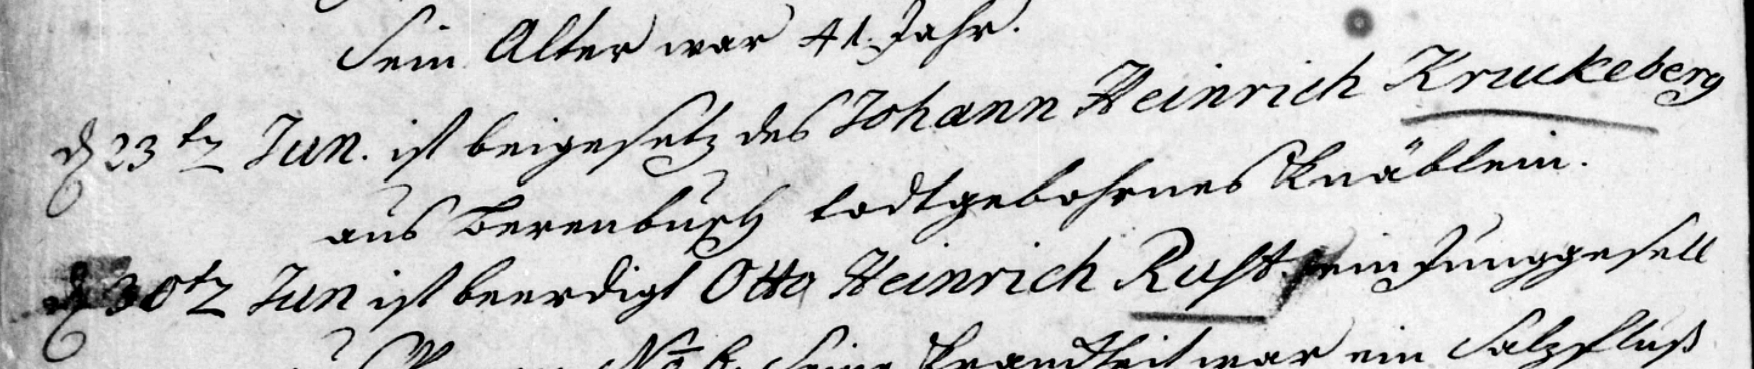 Sein Alter war 41. Jahr.
d 23tz Jun. ist beigesetz des Johann Heinrich Kruckeberg
aus Berenbusch todtgebohrnes Knäblein.
d 30tz Jun ist beerdigt Otto Heinrich Rust. ein Junggesell
No 6. Seine Krankheit war ein Salzfluß